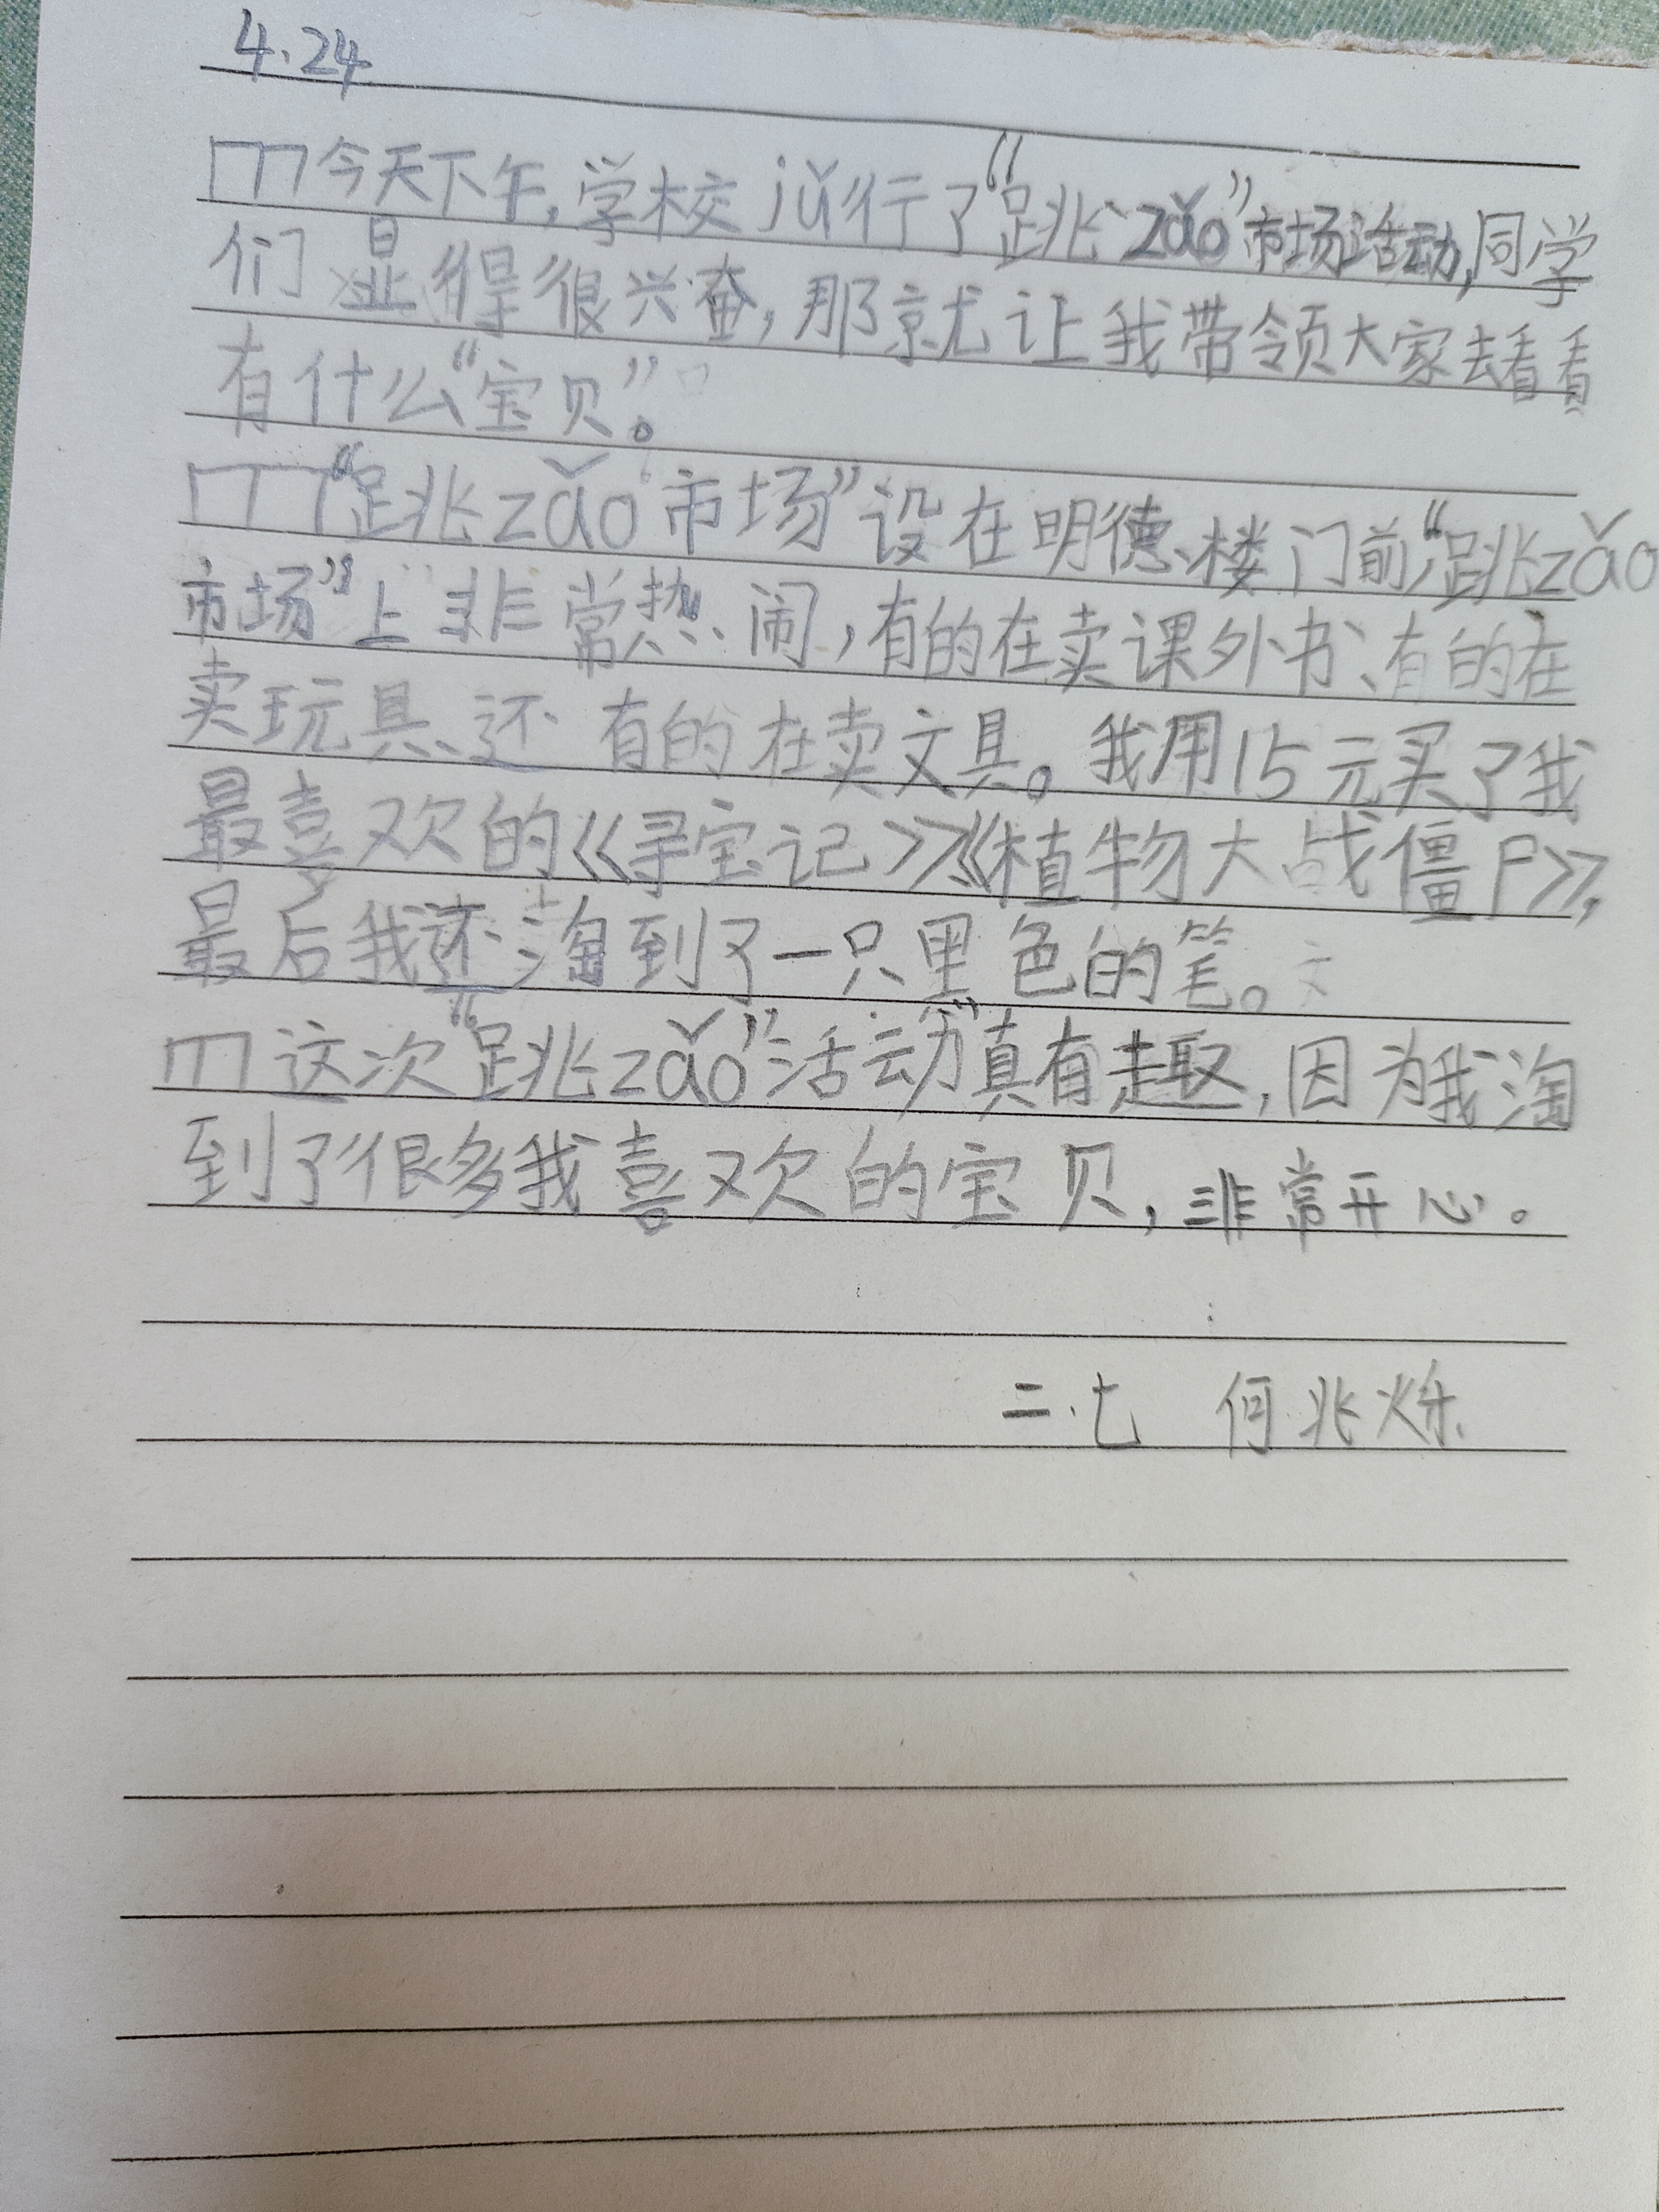 4.24
今天下午,学校jǔ行了“跳zǎo”市场活动,同学
们显得很兴奋,那就让我带领大家去看看
有什么“宝贝”。
“跳zǎo市场”设在明德楼门前,“跳zǎo
市场”上非常热闹,有的在卖课外书、有的在
卖玩具、还有的在卖文具。我用15元买了我
最喜欢的《寻宝记》《植物大战僵尸》,
最后我还淘到了一只黑色的笔。
这次“跳zǎo”活动”真有趣,因为我淘
到了很多我喜欢的宝贝,非常开心。
二.七 何兆烁